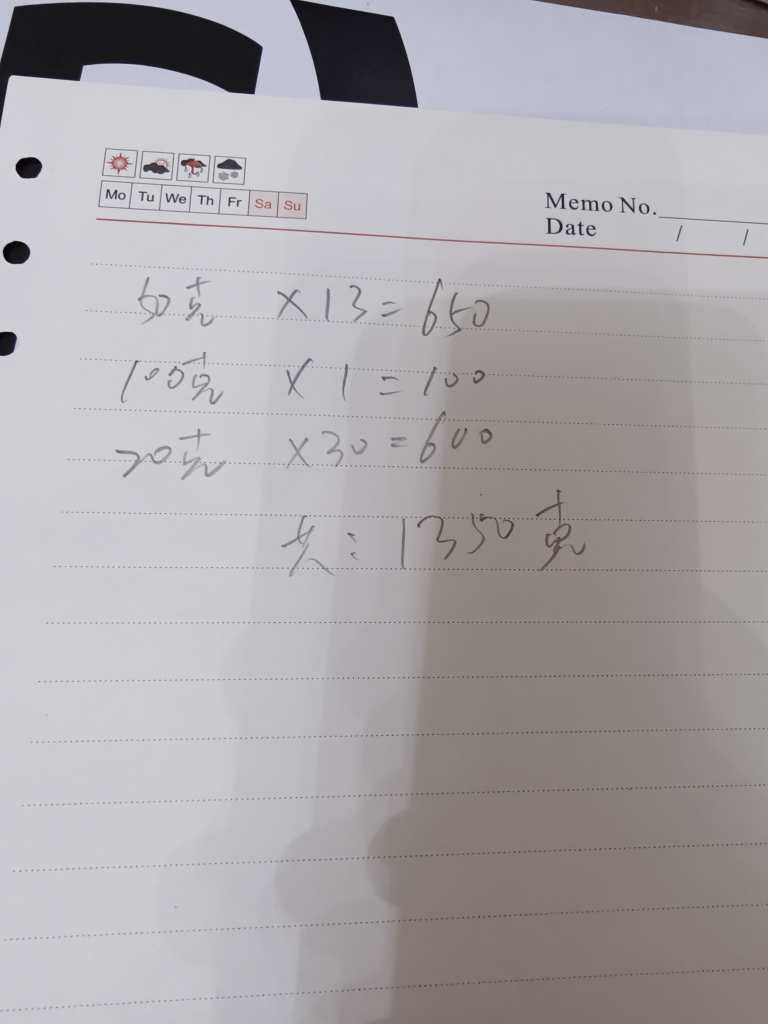 Mo Tu We Th Fr Sa Su
Memo No.
Date / /
50克 ×13=650
100克 ×1=100
20克 ×30=600
共:1350克